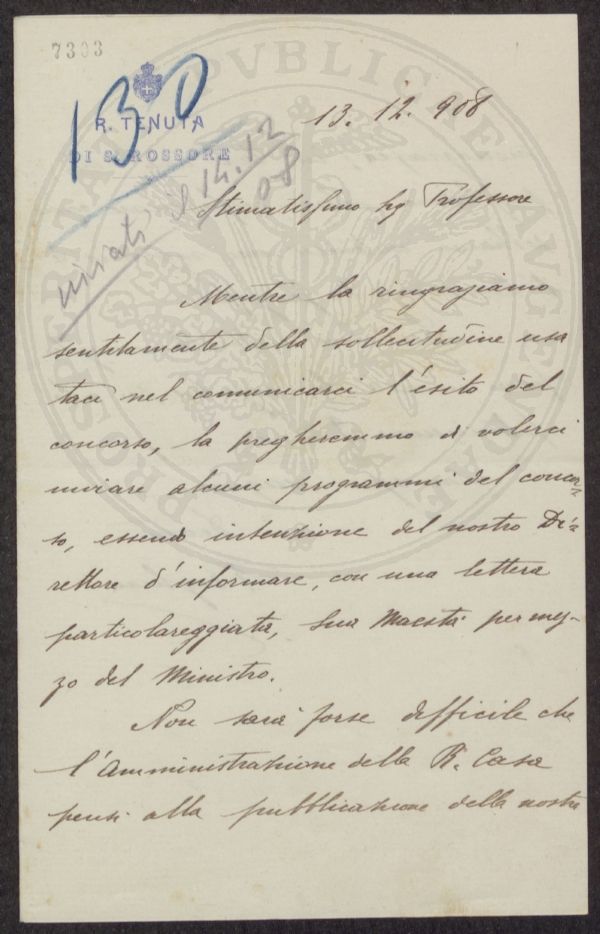 7303
130
R. TENUTA
DI S. ROSSORE
13. 12. 908
inviati il 14.12
08
Stimatissimo Sig Professore
Mentre la ringraziamo
sentitamente della sollecitudine usa
taci nel comunicarci l'esito del
concorso, la pregheremmo di volerci
inviare alcuni programmi del concor-
so, essendo intenzione del nostro Di-
rettore d'informare, con una lettera
particolareggiata, Sua Maestà per mez-
zo del Ministro.
Non sarà forse difficile che
l'Amministrazione della R. Casa
pensi alla pubblicazione della nostra